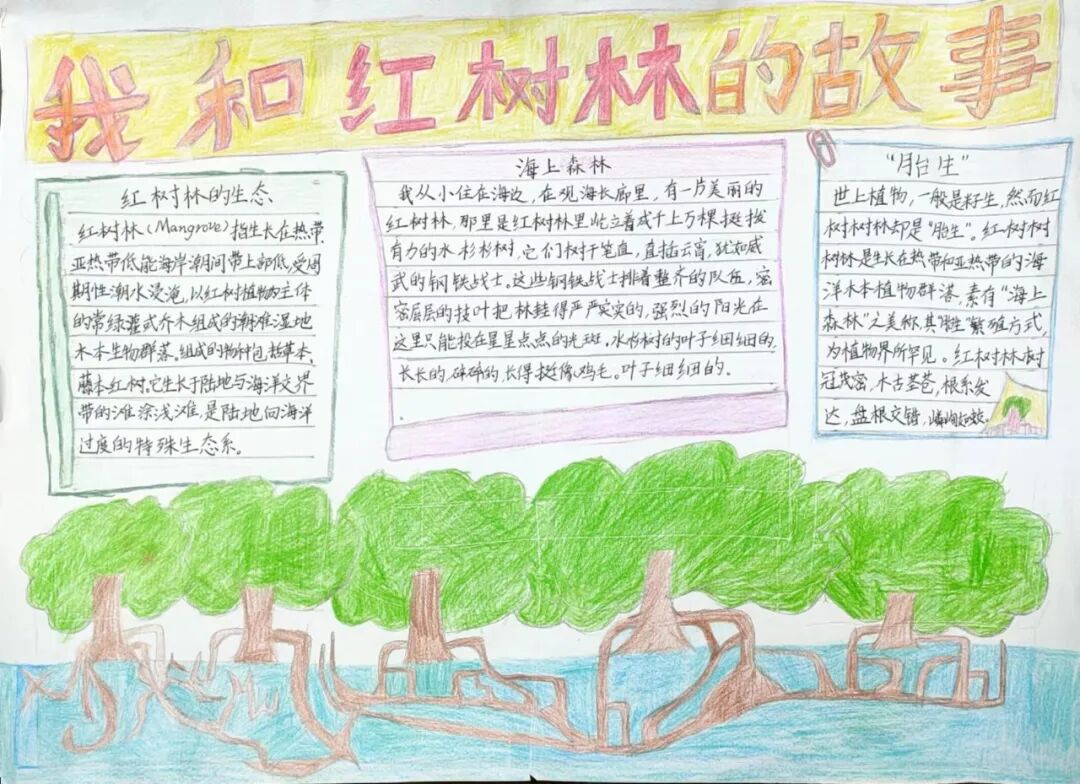 我和红树林的故事
红树林的生态
红树林(Mangrove)指生长在热带、
亚热带低能海岸潮间带上部低,受周
期性潮水浸淹,以红树植物为主体
的常绿灌式乔木组成的潮滩湿地
木本生物群落。组成的物种包括草本、
藤本红树。它生长于陆地与海洋交界
带的滩涂浅滩,是陆地向海洋
过度的特殊生态系。
海上森林
我从小住在海边,在观海长廊里,有一片美丽的
红树林,那里是红树林里屹立着成千上万棵挺拨
有力的水杉杉树,它们树干笔直,直插云宵,犹如威
武的钢铁战士,这些钢铁战士排着整齐的队伍,密
密层层的技叶把林挂得严严实实的,强烈的阳光在
这里只能投在星星点点的光斑,水杉树的叶子细细的,
长长的,碎碎的,长得挺像鸡毛。叶子细细的。
“胎生”
世上植物,一般是籽生,然而红
树树树林却是“胎生”。红树树树
树林是生长在热带和亚热带的海
洋木本植物群落,素有“海上
森林”之美称,其“胎生”繁殖方式,
为植物界所罕见。红树树林树
冠茂密,木古茎苍,根系发
达,盘根交错,